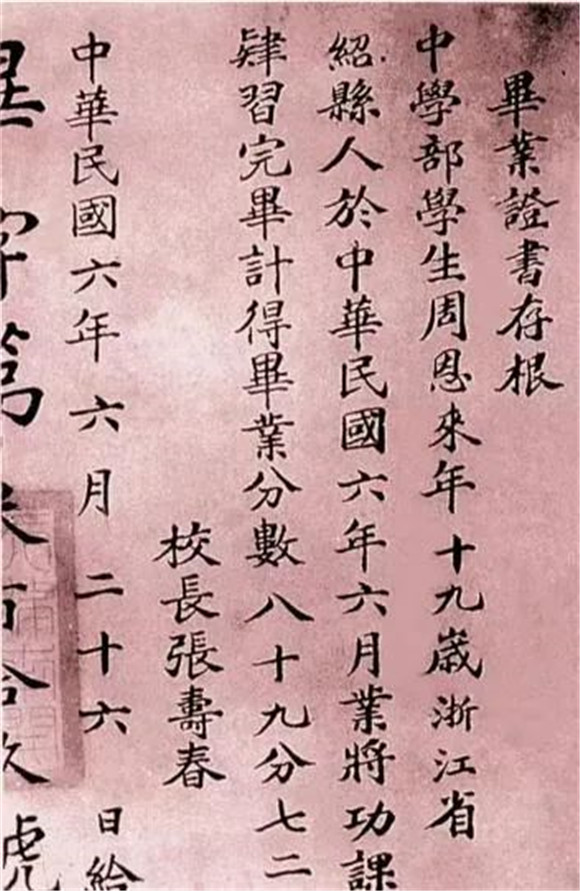 畢業證書存根
中學部學生周恩來年十九歲浙江省
紹縣人於中華民國六年六月業將功課
肄習完畢計得畢業分數八十九分七二
校長張壽春
中華民國六年六月二十六日給
畢字第百拾玖號